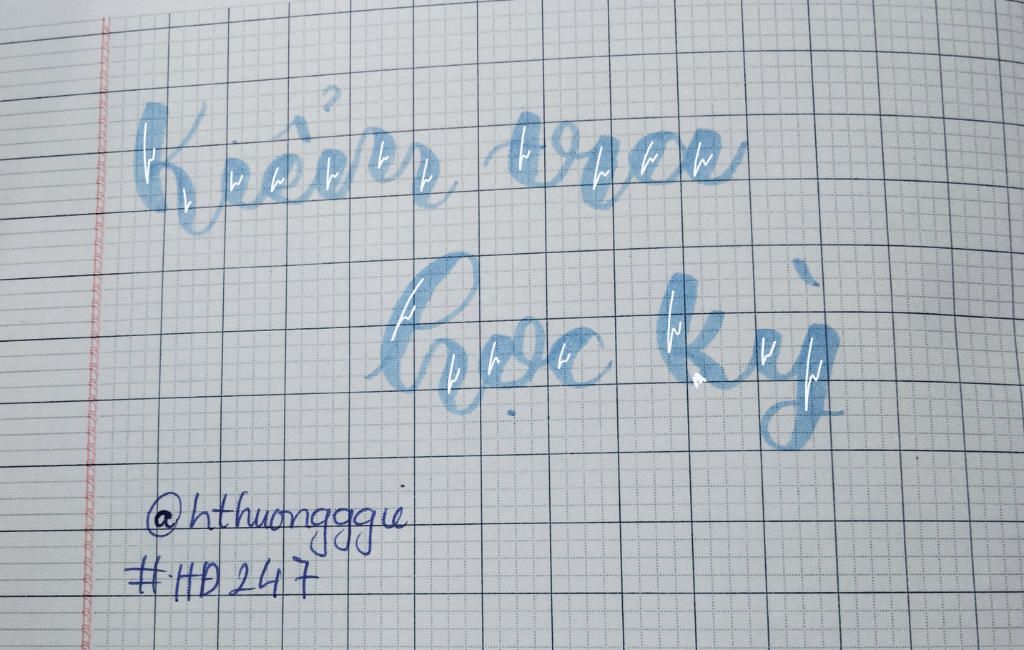 Kiểm tra
học kỳ
@hthuongggie
#HD247